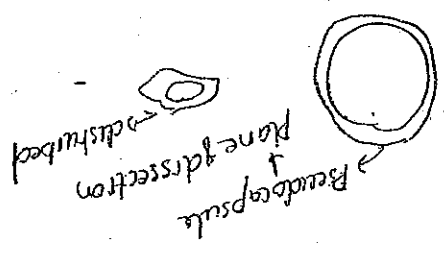 Pseudocapsule
↓
plane of dissection
→ disturbed